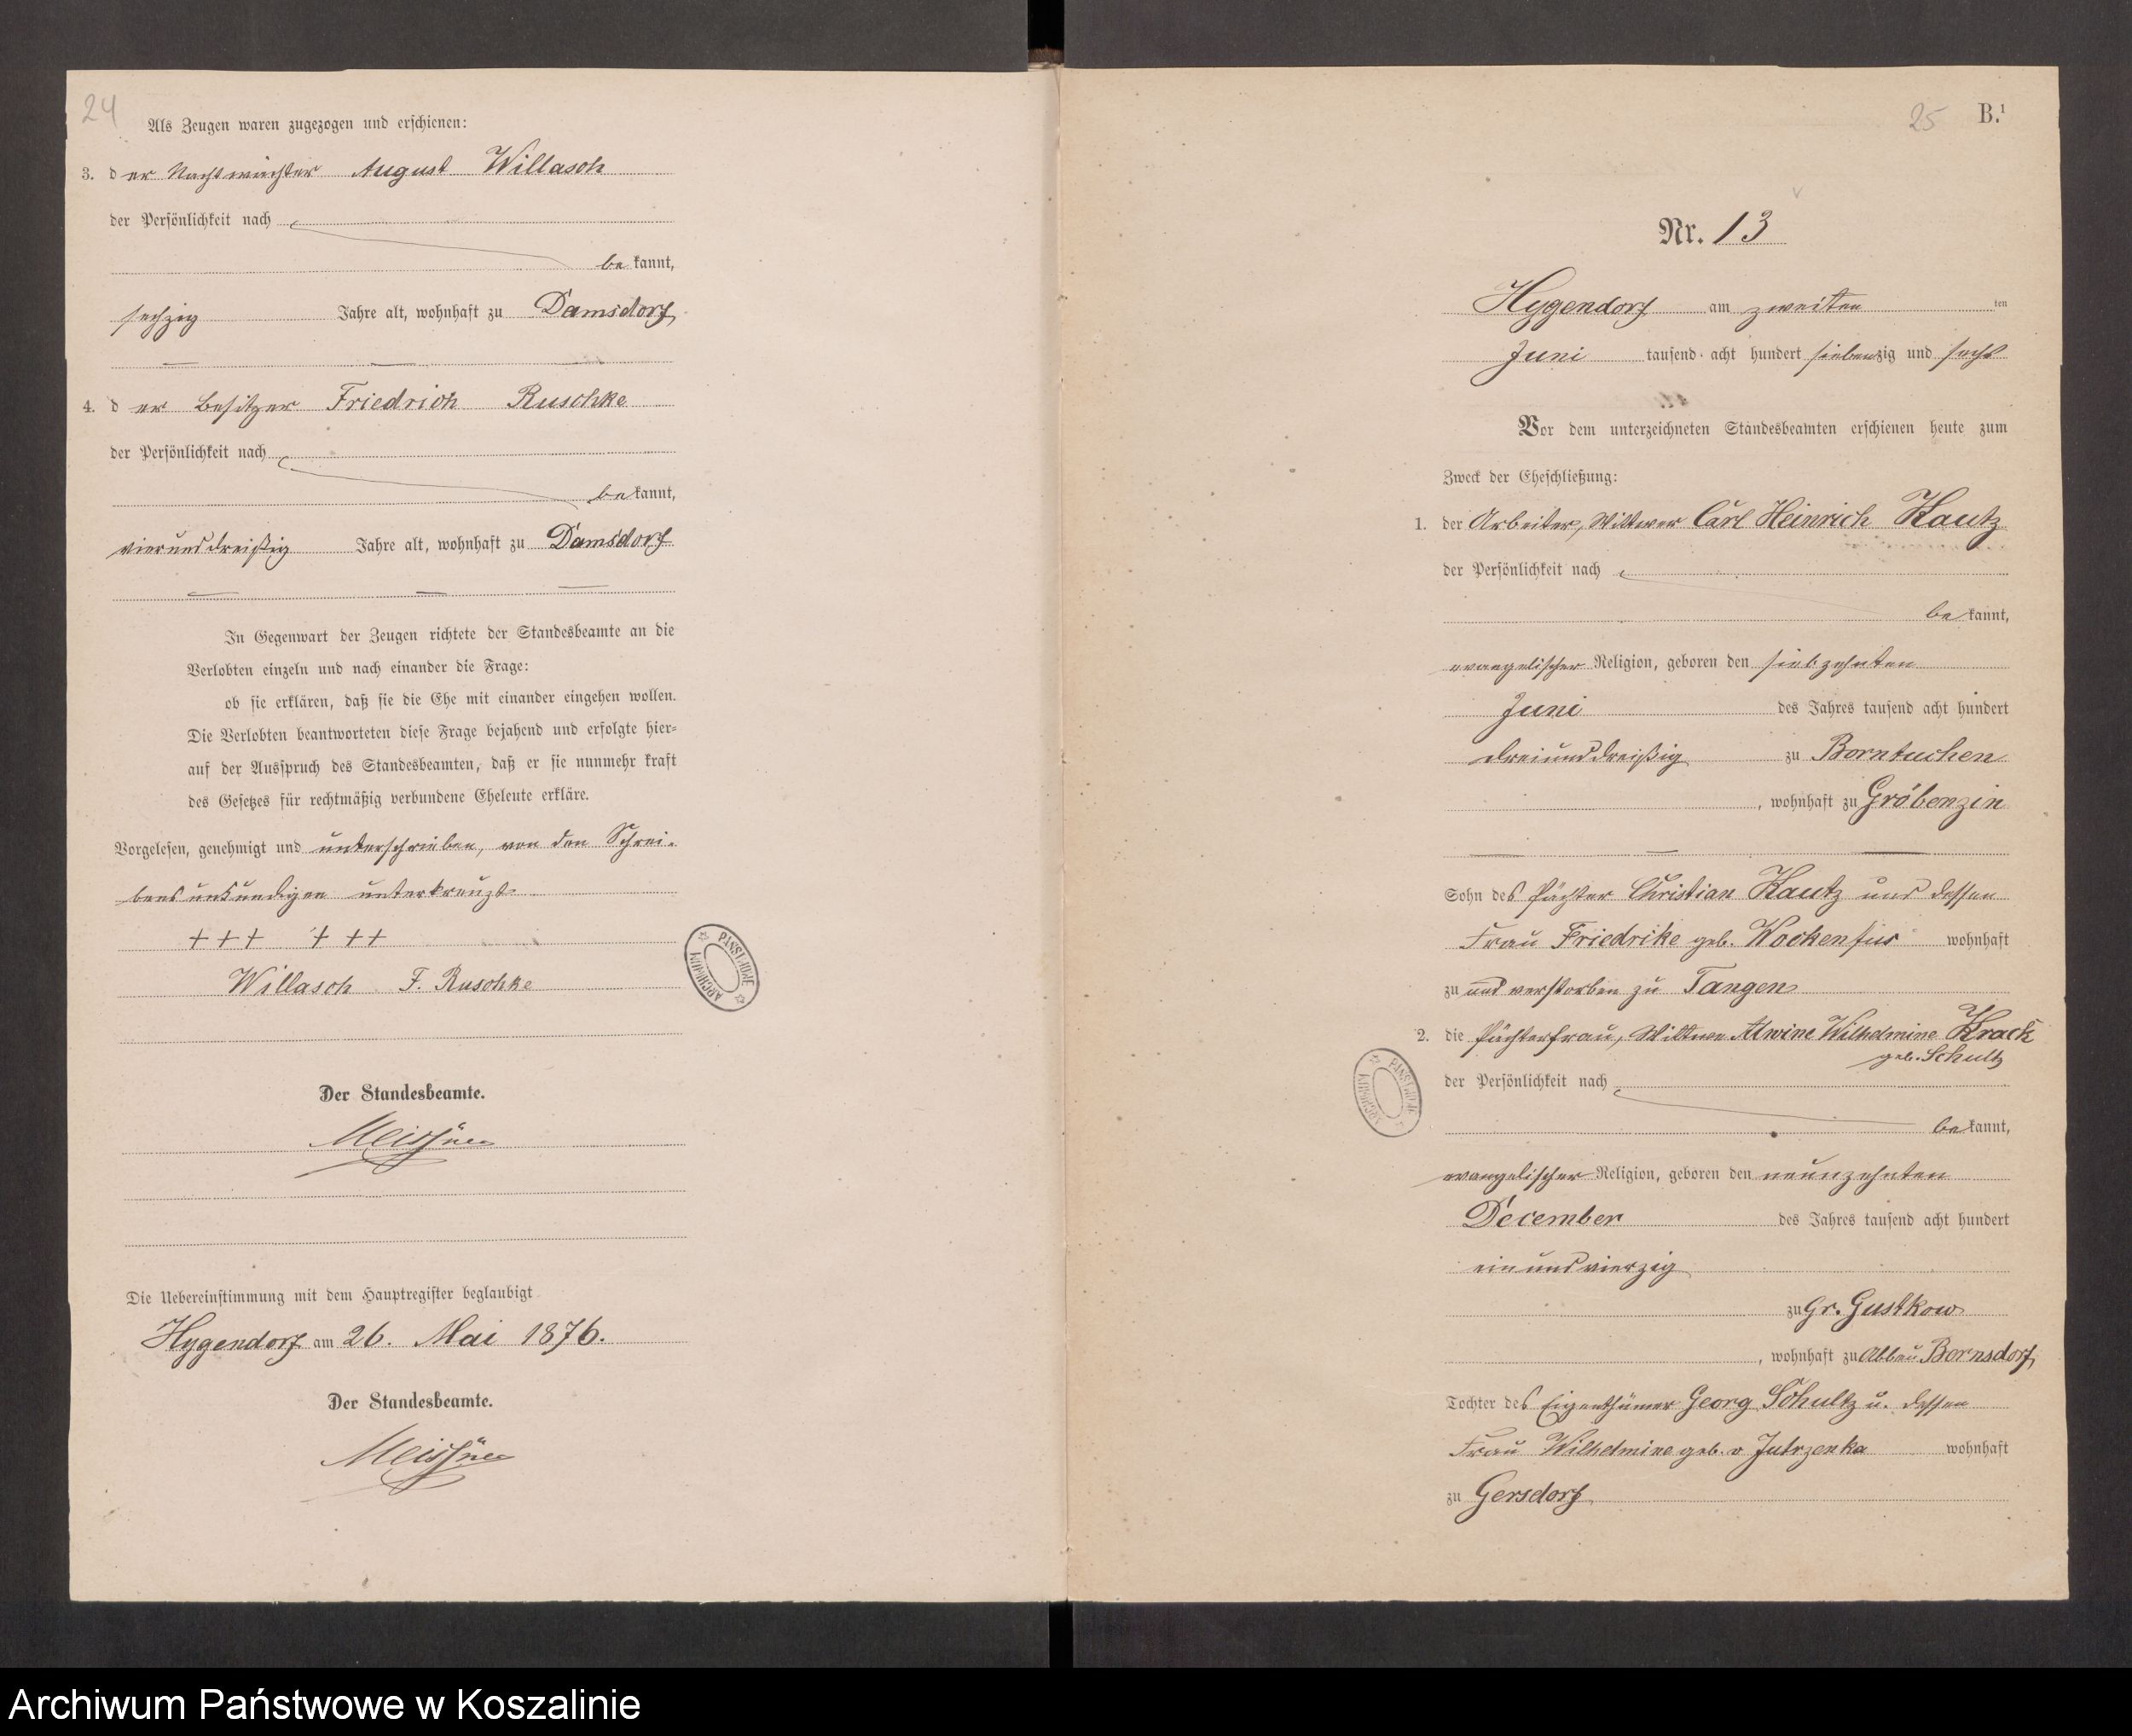 24
Als Zeugen waren zugezogen und erschienen:
3. der Nachtwächter August Willasch
der Persönlichkeit nach
bekannt,
sechzig Jahre alt, wohnhaft zu Damsdorf
4. der Besitzer Friedrich Ruschke
der Persönlichkeit nach
bekannt,
vierunddreißig Jahre alt, wohnhaft zu Damsdorf
In Gegenwart der Zeugen richtete der Standesbeamte an die
Verlobten einzeln und nach einander die Frage:
ob sie erklären, daß sie die Ehe mit einander eingehen wollen.
Die Verlobten beantworteten diese Frage bejahend und erfolgte hier-
auf der Ausspruch des Standesbeamten, daß er sie nunmehr kraft
des Gesetzes für rechtmäßig verbundene Eheleute erkläre.
Vorgelesen, genehmigt und unterschrieben, von den Schrei-
bensunkundigen unterkreuzt
+++ +++
Willasch F. Ruschke
ARCHIWUM PAŃSTWOWE
Der Standesbeamte.
Meissner
Die Uebereinstimmung mit dem Hauptregister beglaubigt
Hygendorf am 26. Mai 1876.
Der Standesbeamte.
Meissner
25 B.¹
Nr. 13
Hygendorf am zweiten ten
Juni tausend acht hundert siebenzig und sechs
Vor dem unterzeichneten Standesbeamten erschienen heute zum
Zweck der Eheschließung:
1. der Arbeiter, Wittwer Carl Heinrich Kautz
der Persönlichkeit nach
bekannt,
evangelischer Religion, geboren den siebzehnten
Juni des Jahres tausend acht hundert
dreiunddreißig zu Borntuchen
, wohnhaft zu Gröbenzin
Sohn des Pächter Christian Kautz und dessen
Frau Friedrike geb. Wockenfus wohnhaft
zu und verstorben zu Tangen
2. die Pächterfrau, Wittwe Alwine Wilhelmine Krack
geb. Schultz
der Persönlichkeit nach
bekannt,
ARCHIWUM PAŃSTWOWE
evangelischer Religion, geboren den neunzehnten
December des Jahres tausend acht hundert
ein und vierzig
zu Gr. Gustkow
, wohnhaft zu Abbau Bornsdorf
Tochter des Eigenthümer Georg Schultz u. dessen
Frau Wilhelmine geb. v Jutrzenka wohnhaft
zu Gersdorf
Archiwum Państwowe w Koszalinie